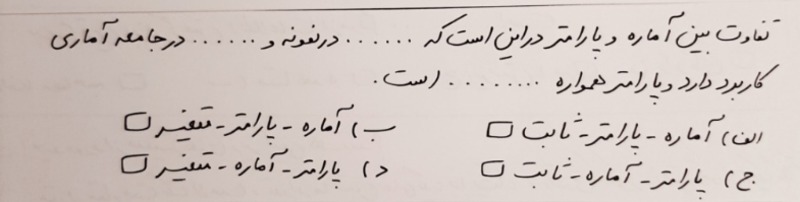 تفاوت بین آماره و پارامتر در این است که ....... در نمونه و ....... در جامعه آماری
کاربرد دارد و پارامتر همواره ......... است.
الف) آماره - پارامتر - ثابت □ ب) آماره - پارامتر - متغیر □
ج) پارامتر - آماره - ثابت □ د) پارامتر - آماره - متغیر □